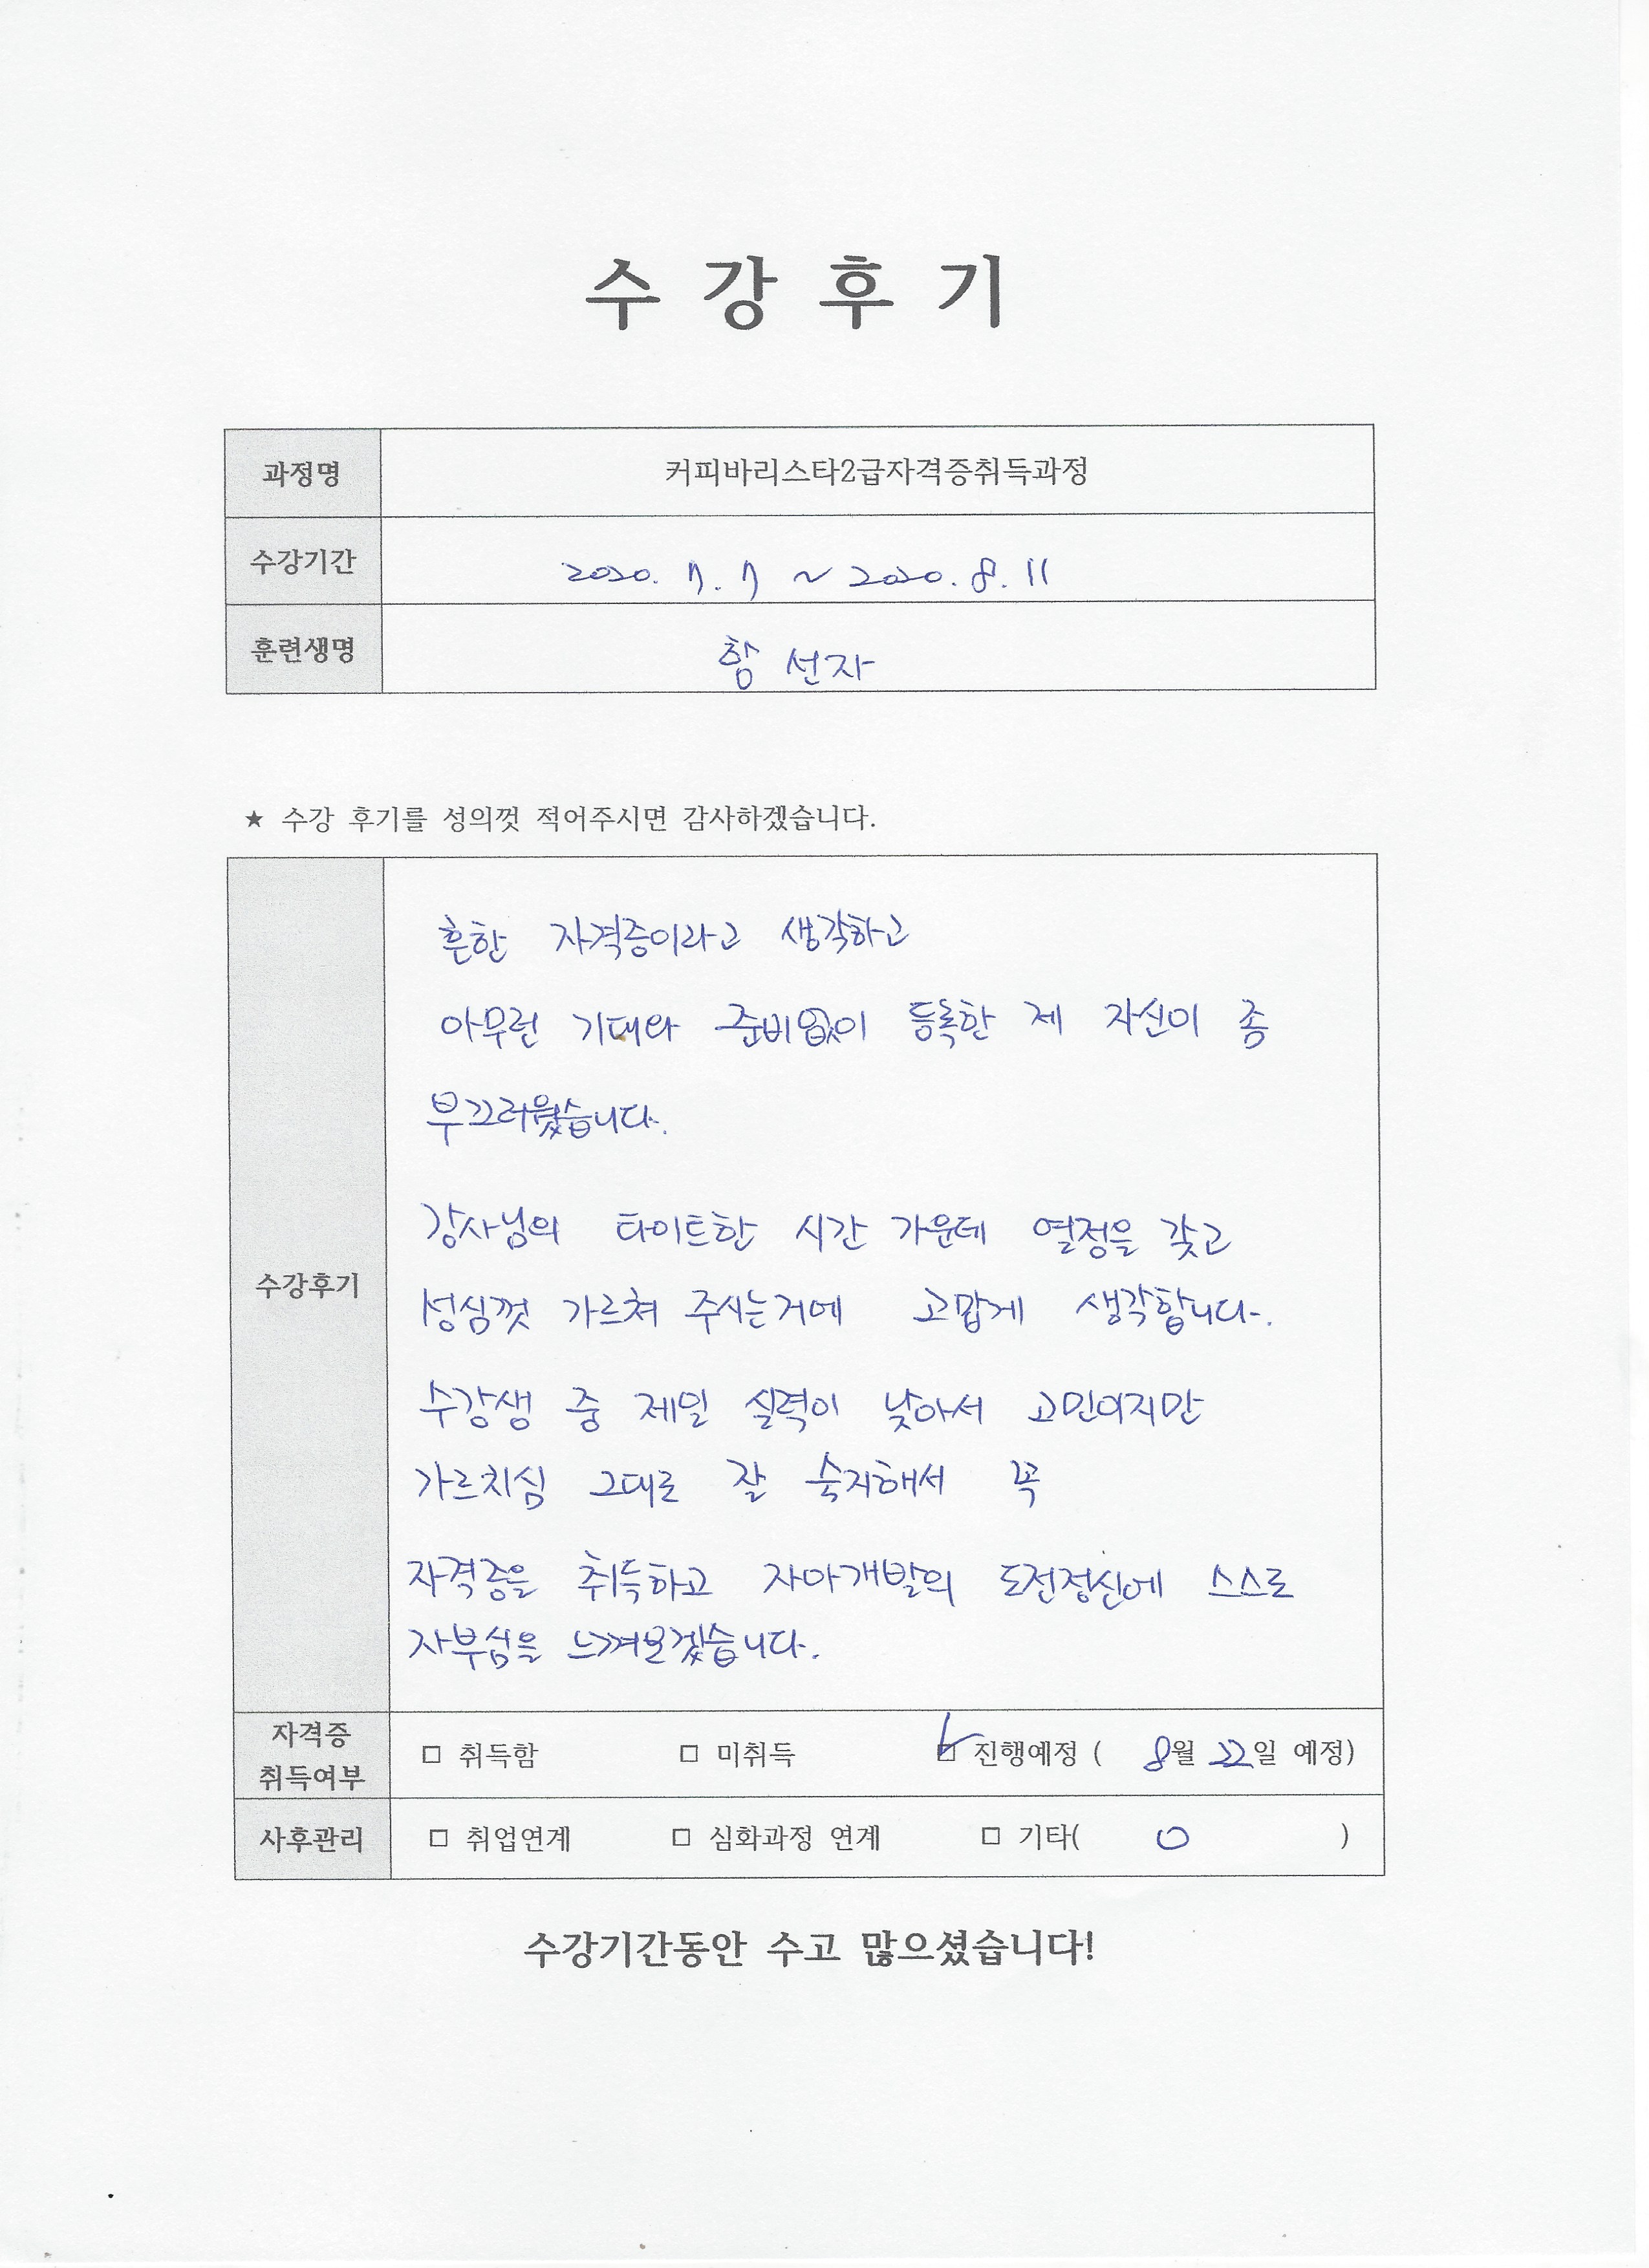 수 강 후 기
과정명 커피바리스타2급자격증취득과정
수강기간 2020. 7. 7 ~ 2020. 8. 11
훈련생명 함 선자
★ 수강 후기를 성의껏 적어주시면 감사하겠습니다.
흔한 자격증이라고 생각하고
아무런 기대와 준비없이 등록한 제 자신이 좀
부끄러웠습니다.
강사님의 타이트한 시간 가운데 열정을 갖고
수강후기
성심껏 가르쳐 주시는거에 고맙게 생각합니다.
수강생 중 제일 실력이 낮아서 고민이지만
가르치심 그대로 잘 숙지해서 꼭
자격증을 취득하고 자아개발의 도전정신에 스스로
자부심을 느껴보겠습니다.
자격증
취득여부
□ 취득함 □ 미취득 ☑ 진행예정 ( 8월 22일 예정)
사후관리 □ 취업연계 □ 심화과정 연계 □ 기타( 0 )
수강기간동안 수고 많으셨습니다!